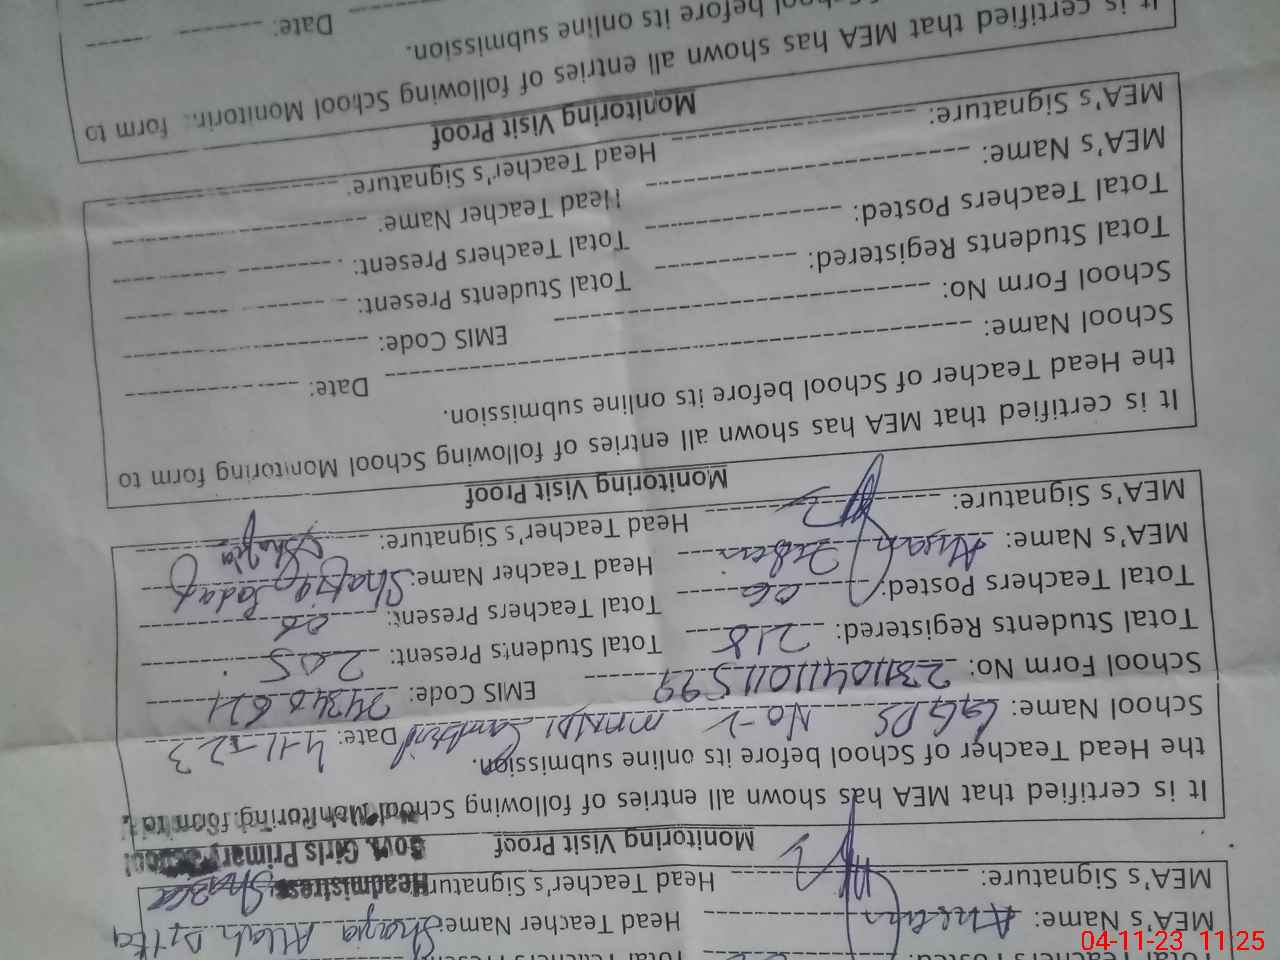 MEA's Name: Head Teacher Name: Shazia Allah Ditta
MEA's Signature: Head Teacher's Signature:
Headmistress
Govt. Girls Primary School
Monitoring Visit Proof
It is certified that MEA has shown all entries of following School Monitoring form to
the Head Teacher of School before its online submission.
School Name: GGPS No-2 Date: 4-11-23
School Form No: EMIS Code:
Total Students Registered: 218 Total Students Present: 205
Total Teachers Posted: 06 Total Teachers Present: 06
MEA's Name: Head Teacher Name: Shafia Sadaf
MEA's Signature: Head Teacher's Signature: Shafia
Monitoring Visit Proof
It is certified that MEA has shown all entries of following School Monitoring form to
the Head Teacher of School before its online submission.
School Name: Date:
School Form No: EMIS Code:
Total Students Registered: Total Students Present:
Total Teachers Posted: Total Teachers Present:
MEA's Name: Head Teacher Name:
MEA's Signature: Head Teacher's Signature:
Monitoring Visit Proof
It is certified that MEA has shown all entries of following School Monitoring form to
School before its online submission.
Date:
04-11-23 11:25